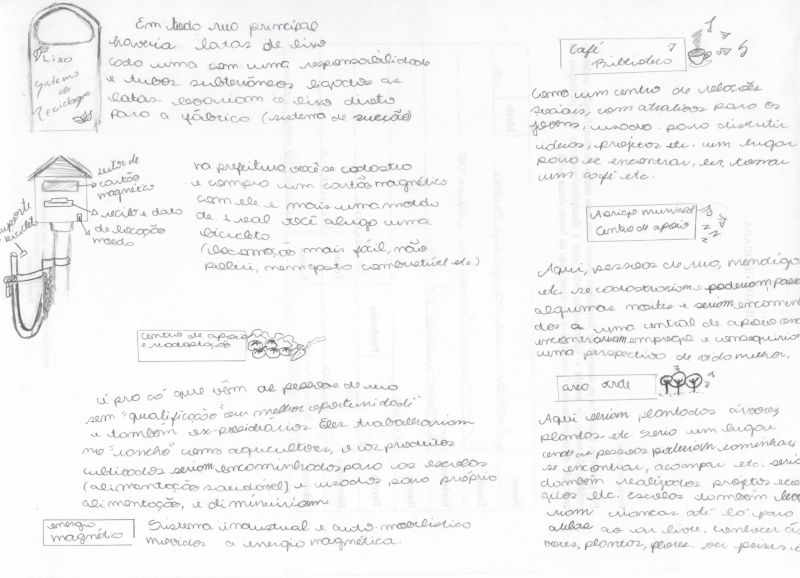 Em todo rua principal
haveria latas de lixo
cada uma com uma responsabilidade
e tubos subterrâneos ligados as
latas levariam o lixo direto
para a fábrica (sistema de sucção)
Lixo
Sistema
de
Reciclagem
leitor de
cartão
magnético
recibo e data
de locação
moeda
suporte
bicicleta
na prefeitura você se cadastra
e compra um cartão magnético
com ele e mais uma moeda
de 1 real você aluga uma
bicicleta
(locomoção mais fácil, não
polui, nem gasta combustível etc.)
centro de apoio
e readaptação
é pra cá que vêm as pessoas de rua
sem "qualificação" ou melhor "oportunidade"
e também ex-presidiários. Eles trabalhariam
no "rancho" como agricultores, e os produtos
cultivados seriam encaminhados para as escolas
(alimentação saudável) e usados para própria
alimentação, e diminuiriam
energia
magnético
Sistema industrial e auto-mobilístico
movidos a energia magnética.
Café
Biblioteca
Como um centro de relações
sociais, com atrativos para os
jovens, usado para discutir
ideias, projetos etc. um lugar
para se encontrar, ler, tomar
um café etc.
Abrigo municipal
Centro de apoio
Aqui, pessoas de rua, mendigos
etc. se cadastrariam e poderiam passar
algumas noites e seriam encaminha
dos a uma central de apoio onde
encontrariam emprego e conseguiriam
uma perspectiva de vida melhor.
area verde
Aqui seriam plantados árvores
plantas etc. seria um lugar
onde as pessoas poderiam caminhar,
se encontrar, acampar etc. seria
também realizados projetos
etc. Escolas também
riam crianças até lá para
ao ar livre. conhecer ár
vores, plantas, flores. ver peixes e